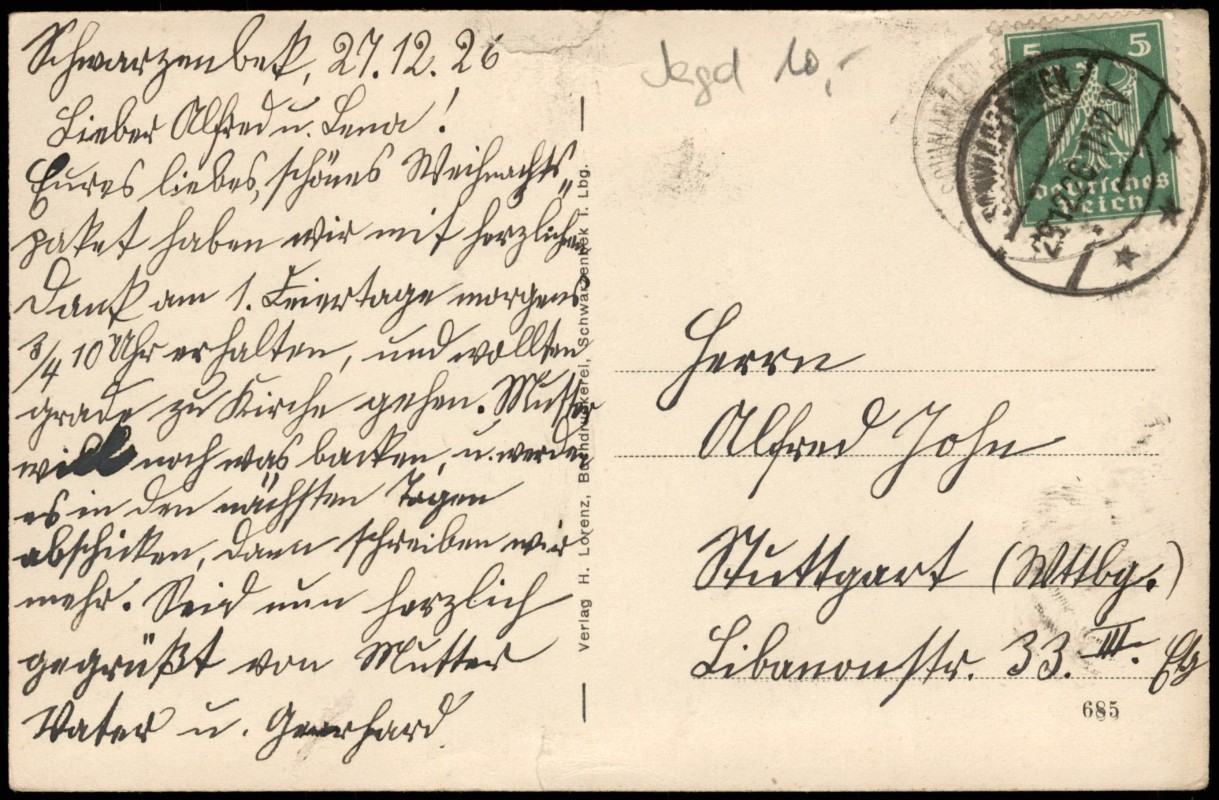 Schwarzenbek, 27.12.26
Lieber Alfred u. Lena!
Eures liebes, schönes Weihnachts„
paket haben wir mit herzlichen
Dank am 1. Feiertage morgens
3/4 10 Uhr erhalten, und wollten
grade zu Kirche gehen. Mutter
will noch was backen, u. werden
es in den nächsten Tagen
abschicken, dann schreiben wir
mehr. Seid nun herzlich
gegrüßt von Mutter
Vater u. Gerhard
Verlag H. Lorenz, Buchdruckerei, Schwarzenbek i. Lbg.
Jagd 10,-
5 5
Deutsches
Reich
SCHWARZENBEK
29.12.26 11-12 V
Herrn
Alfred John
Stuttgart (Wttbg.)
Libanonstr. 33. III. Etg
685